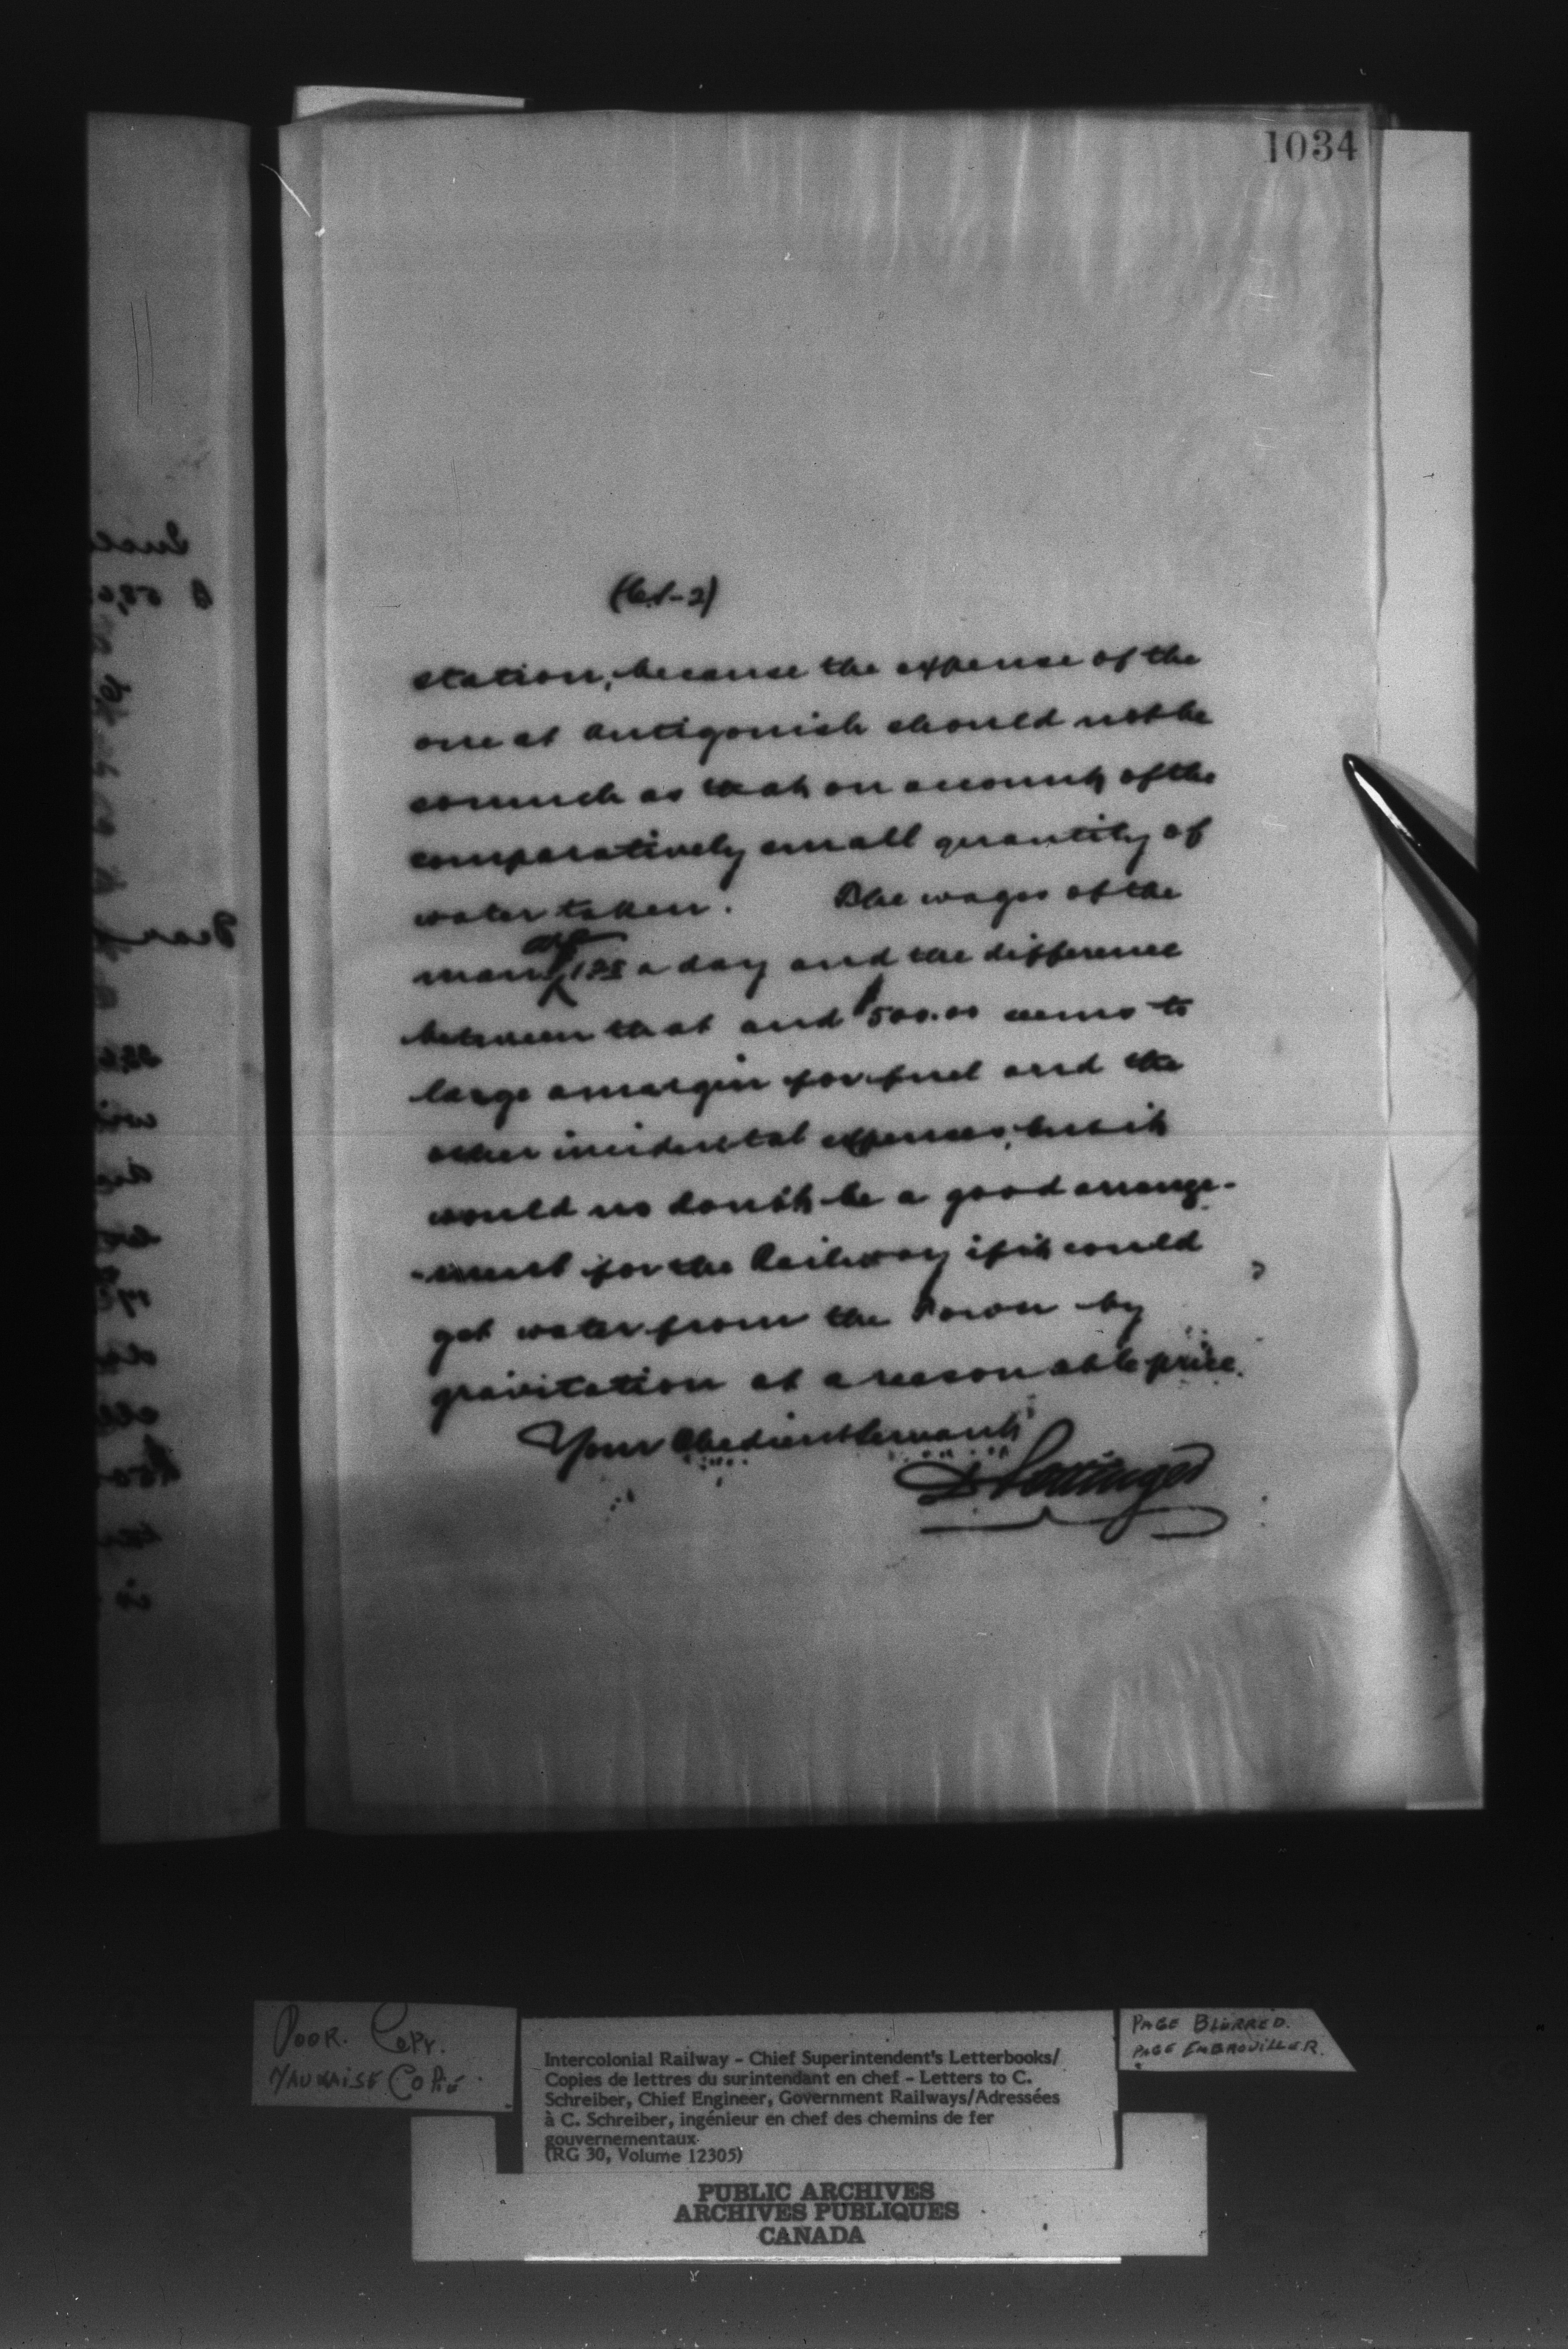 1034
station, because the expense of the
one at Antigonish should not be
so much as that on account of the
comparatively small quantity of
water taken. The wages of the
man are $1.25 a day and the difference
between that and $500.00 seems to
large a margin for fuel and the
other incidental expenses, but it
would no doubt be a good arrange-
-ment for the Railway if it could
get water from the Town by
gravitation at a reasonable price.
Your Obedient Servant
D Pottinger
POOR. COPY.
MAUVAISE COPIE.
Intercolonial Railway - Chief Superintendent's Letterbooks/
Copies de lettres du surintendant en chef - Letters to C.
Schreiber, Chief Engineer, Government Railways/Adressées
à C. Schreiber, ingénieur en chef des chemins de fer
gouvernementaux
(RG 30, Volume 12305)
PAGE BLURRED.
PAGE EMBROUILLER.
PUBLIC ARCHIVES
ARCHIVES PUBLIQUES
CANADA